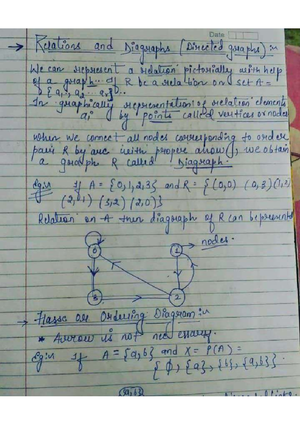 Date
→ Relations and Diagraphs (Directed graphs) :-
We can represent a relation pictorially with help
of a graph. If R be a relation on set A =
{a1, a2, a3 ...}
In graphically representation of relation elements
ai by points called vertices or nodes
when we connect all nodes corresponding to order
pair R by arc with proper arrow(), we obtain
a graph R called Diagraph.
Eg:- If A = {0,1,2,3} and R = {(0,0) (0,3)
(2,1) (3,2) (2,0)}
Relation on A then diagraph of R can be
nodes.
0
3
2
→ Hassa or Ordering Diagram :-
* Arrow is not necessary.
Eg:- If A = {a,b} and X = P(A) =
{φ, {a}, {b}, {a,b}}.